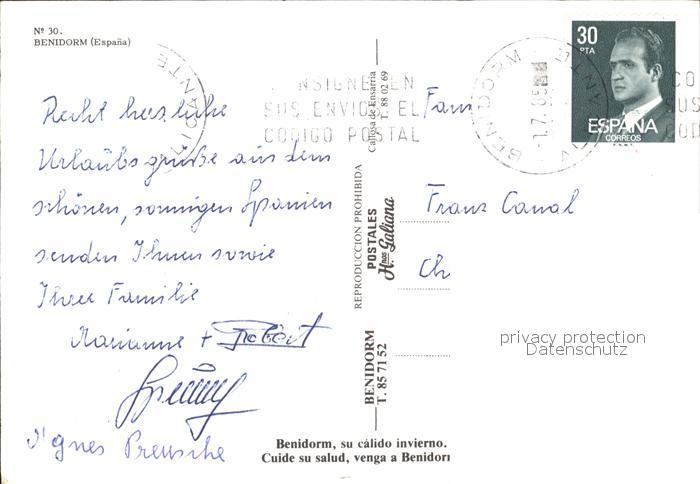 Nº 30.
BENIDORM (España)
Recht herzliche
Urlaubsgrüße aus dem
schönen, sonnigen Spanien
senden Ihnen sowie
Ihrer Familie
Marianne + Robert
Agnes Preusche
CONSIGNE EN
SUS ENVIOS EL
CODIGO POSTAL
BENIDORM
ALICANTE
-1.7.85
30
PTA
ESPAÑA
CORREOS
F.N.M.T.
CO
SUS
COD
Fam
Franz Canal
Ch
Callosa de Ensarria
T. 88 02 69
REPRODUCCION PROHIBIDA
POSTALES
Hnos Galiana
BENIDORM
T. 85 71 52
privacy protection
Datenschutz
Benidorm, su cálido invierno.
Cuide su salud, venga a Benidor